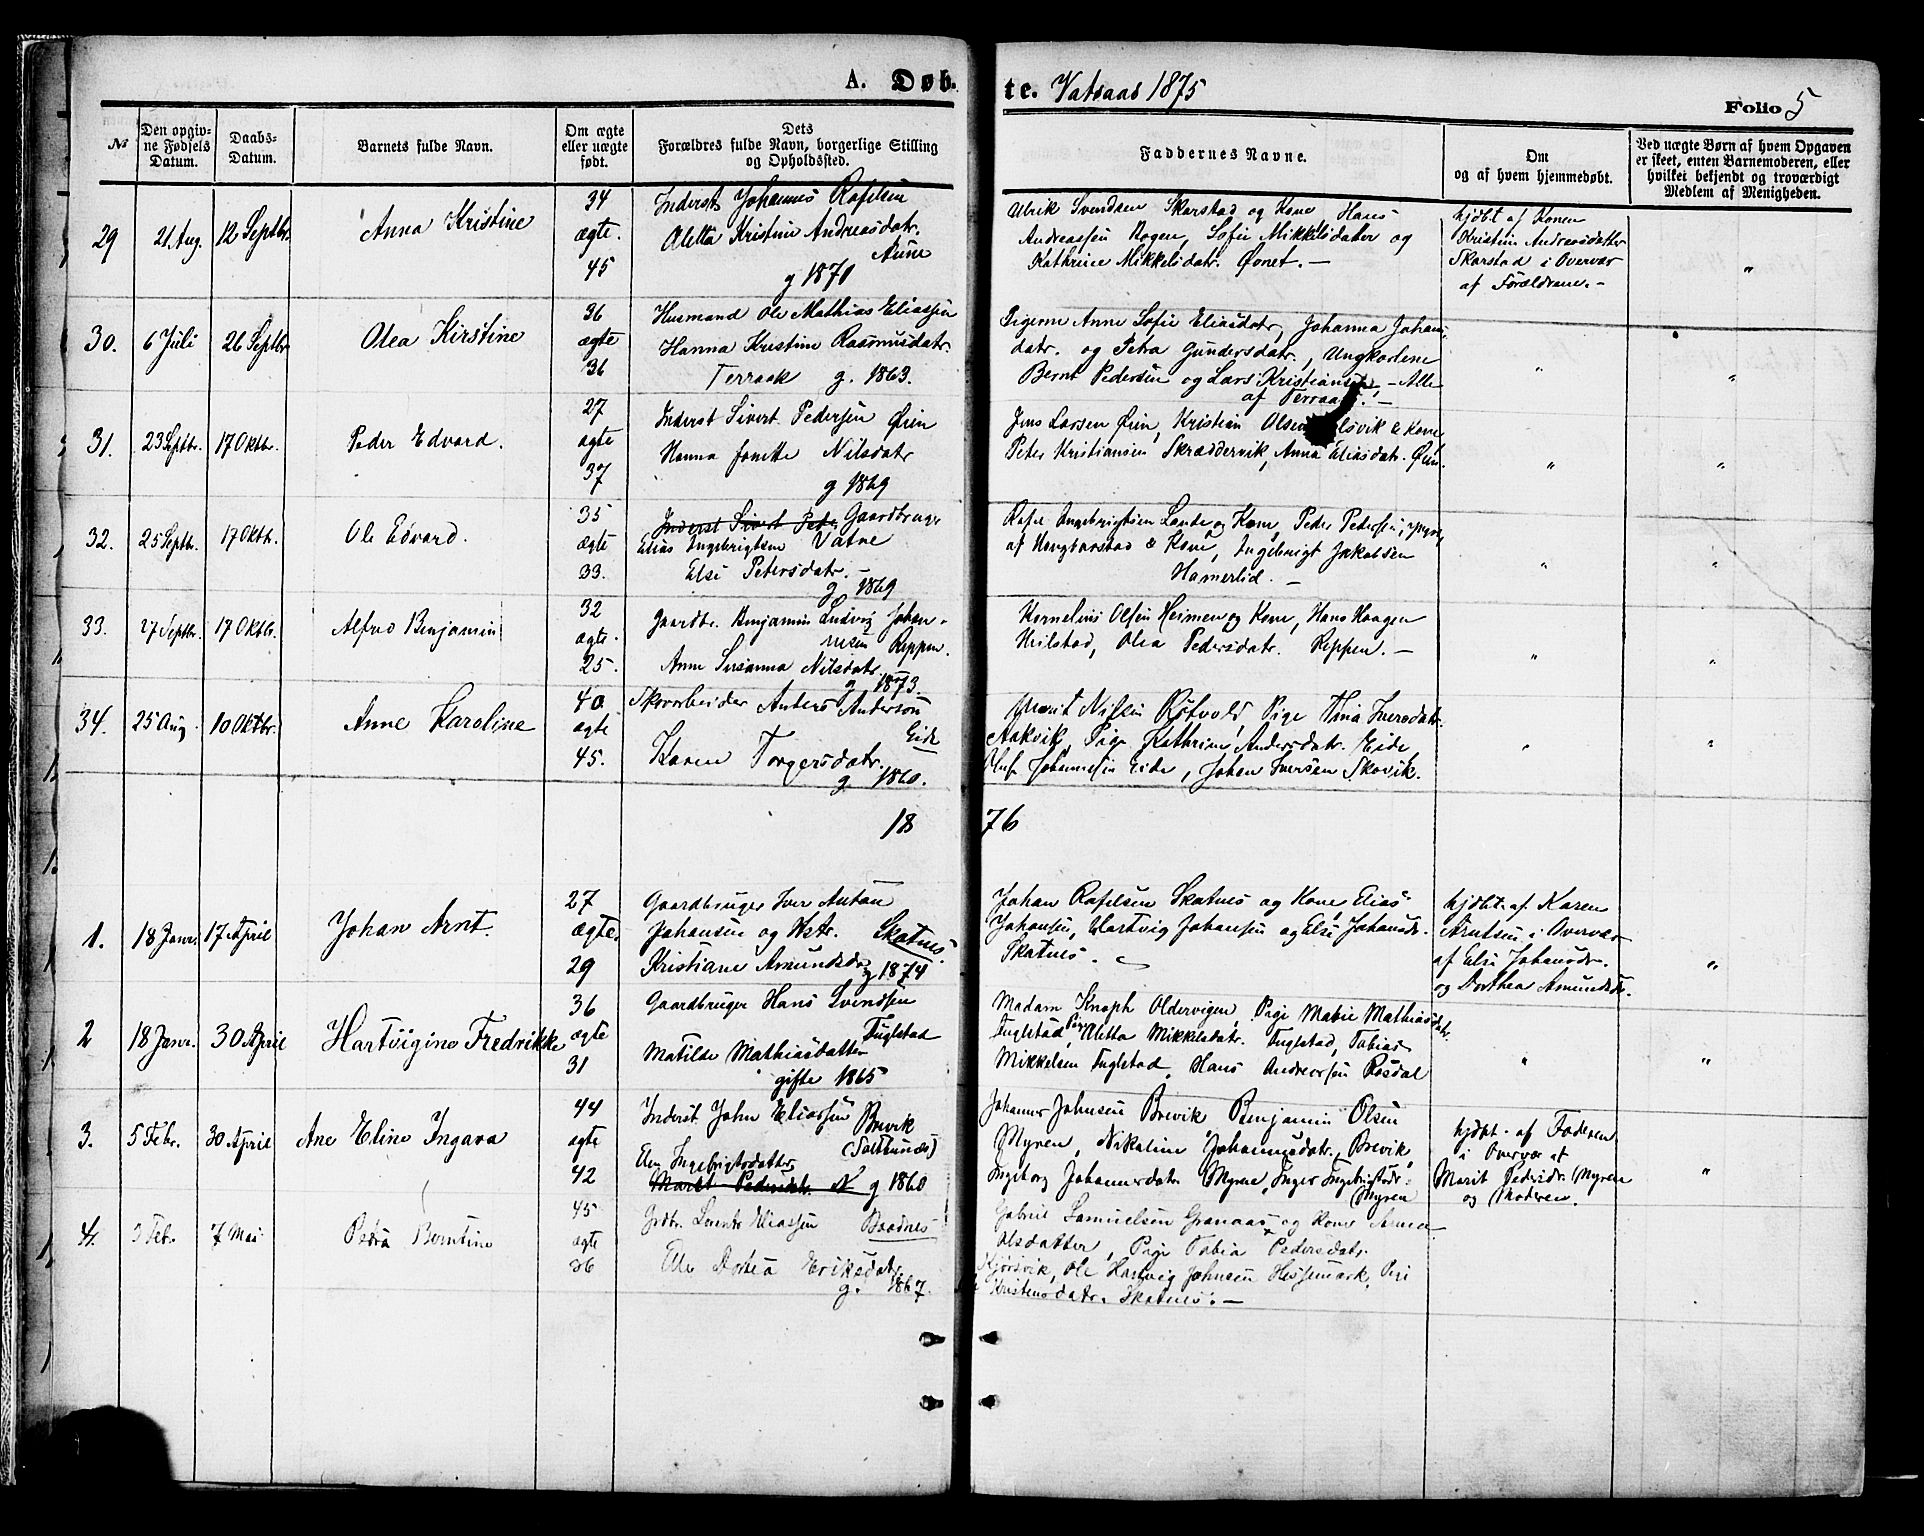 A. Døb- te. Vatsaas 1875
Folio 5
№
Den opgiv-
ne Fødsels
Datum.
Daabs-
Datum.
Barnets fulde Navn.
Om ægte
eller uægte
født.
Dets
Forældres fulde Navn, borgerlige Stilling
og Opholdssted.
Faddernes Navne.
Om
og af hvem hjemmedøbt.
Ved uægte Børn af hvem Opgaven
er skeet, enten Barnemoderen, eller
hvilket bekjendt og troværdigt
Medlem af Menigheden.
29 21 Aug. 12 Septbr. Anna Kristine
34
ægte.
45
Inderst Johannes Rafelsen
Aletta Kristine Andreasdatr.
Aune
g 1870
Ulrik Svendsen Skarstad og Kone, Hans
Andreassen Hogen, Sofie Mikkelsdatter og
Kathrine Mikkelsdatr. Øvnet. —
hjdbt af Konen
Kristine Andreasdatter
Skarstad i Overvær
af Forældrene. -
"
30. 6 Juli 26 Septbr Olea Kirstine
36
ægte
36
Husmand Ole Mathias Eliassen
Hanna Kristine Rasmusdatr.
Terraak g. 1863.
Pigerne Anne Sofie Eliasdatr, Johanna Johans-
datr. og Petra Gundersdatr., Ungkarlene
Bernt Pedersen og Lars Kristiansen, - Alle
af Terraak. -
" "
31. 23 Septbr. 17 Oktbr. Peder Edvard.
27
ægte
37
Inderst Sivert Pedersen Øien
Hanna Jonette Nilsdatr
g 1869
Jens Larsen Øien, Kristian Olsen &Kone,
Peter Kristiansen Skræddervik, Anna Eliasdatr. Øien.
" "
32. 25 Septbr. 17 Oktbr. Ole Edvard.
35
ægte
33.
Inderst Sivert Pede Gaardbruger
Elias Ingebrigtsen Vatne
Else Petersdatr. -
g 1869
Rafel Ingebrigtsen Lande og Kone, Peder Pedersen,
af Hongbarstad & Kone, Ingebrigt Jakobsen
Hamerlid. -
" "
33. 27 Septbr. 17 Oktbr. Alfred Benjamin
32
ægte.
25.
Gaardbr. Benjamin Ludvig Johan-
nesen Reppen.
Anne Susanna Nilsdatr.
g 1873.
Kornelius Olsen Heimen og Kone, Hans Haagen
Heilstad, Olea Pedersdatr. Reppen. -
" "
34. 25 Aug. 10 Oktbr. Anne Karoline
40
ægte
45.
Skovarbeider Anders Anderson
Eide
Karen Torgersdatr.
g. 1860.
Marit Nilsen Røtvold, Pige Tina Iversdatr.
Aakvik, Pige Kathrine Andersdatr. Eide,
Oluf Johannesen Eide, Johan Iversen Skovik.
" "
18 76
1. 18 Janr. 17 April Johan Arnt.
27
ægte.
29
Gaardbruger Iver Antau
Johansen og Hstr. Skatnes.
Kristiane Amundsdr g 1874
Johan Rafelsen Skatnes og Kone, Elias
Johansen, Hartvig Johansen og Else Johansdr.
Skatnes.
hjdbt. af Karen
Arntsen i Overvær
af Else Johansdr.
og Dorthea Amundsdr.
"
2 18 Janr. 30 April Hartvigine Fredrikke
36
ægte
31
Gaardbruger Hans Svendsen
Fuglstad
Matilde Mathiasdatter
gifte 1865
Madam Knoph Oldervigen, Pige Marie Mathiasdatr.
Fuglstad, Pige Aletta Mikkelsdatr. Fuglstad, Tobias
Mikkelsen Fuglstad, Hans Andreassen Røsdal
" "
3. 5 Febr. 30 April Ane Eline Ingara
44
ægte
42
Inderst John Eliassen Brevik
(Toftsundes)
Elen Ingebrigtsdatter
Marit Pedersdatr. N g 1860
Johannes Johnsen Brevik, Benjamin Olsen
Myren, Nikoline Johannesdatr. Brevik,
Ingeborg Johannesdatr Myren, Inger Ingebrigtsdr.
(Myren)
hjdbt. af Faderen
i Overvær af
Marit Pedersdr. (Myren
og Moderen.
"
4. 3 Febr. 7 Mai Petra Berntine
45
ægte
36
Grdbr. Lorents Eliassen Baadnes
Elen Dortea Eriksdatr.
g. 1867.
Gabriel Samuelsen Granaas og Kone Anna
Olsdatter, Pige Tobia Pedersdatr.
Kjørsvik, Ole Hartvig Johnsen Hessemark, Pige
Kristensdatr. Skatnes. -